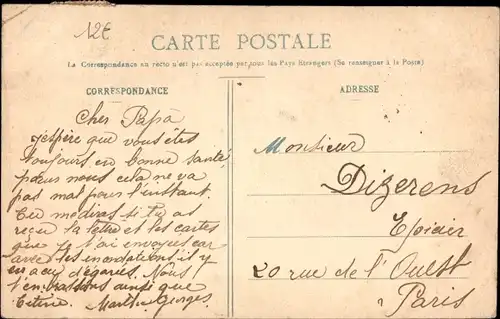 12E
CARTE POSTALE
La Correspondance au recto n'est pas acceptée par tous les Pays Étrangers (Se renseigner à la Poste)
CORRESPONDANCE
ADRESSE
Cher Papa
J'espère que vous êtes
toujours en bonne santé
pour nous cela ne va
pas mal pour l'instant.
Tu me diras si tu as
reçu la lettre et les cartes
que je t'ai envoyés car
avec les inondations il y
en a eu d'égarées. Nous
t'embrassons ainsi que
Marthe Georges
Monsieur
Dizerens
Epicier
20 rue de l'Ouest
Paris